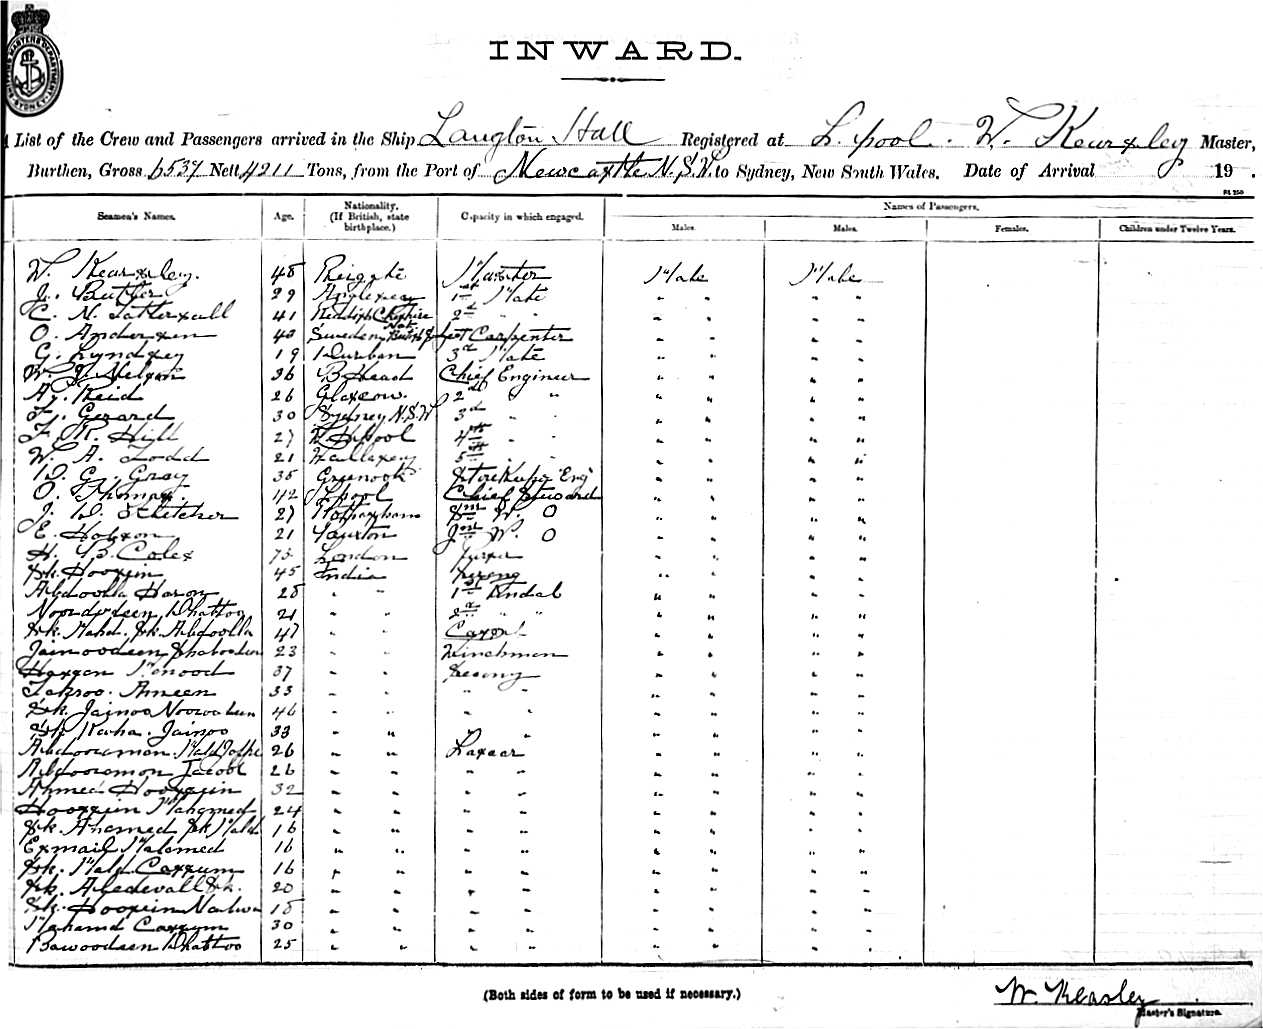 SHIPPING MASTERS DEPARTMENT SYDNEY
INWARD.
A List of the Crew and Passengers arrived in the Ship Langton Hall Registered at L.pool. W. Kearsley Master,
Burthen, Gross 6537 Nett 4211 Tons, from the Port of Newcastle N.S.W. to Sydney, New South Wales. Date of Arrival 19 .
Seamen's Names. Age. Nationality. (If British, state birthplace.) Capacity in which engaged. Names of Passengers.
Males. Males. Females. Children under Twelve Years.
W. Kearsley. 48 Reigate Master Male Male
J. Butler 29 Anglesey 1st Mate " " " "
C. N. Tattersall 41 Reddish Cheshire 2d " " " " " "
O. Andersen 40 Sweden Not British Subject Carpenter " " " "
G. Lyndsey 19 Durban 3d Mate " " " "
W. Nelson 36 B Head Chief Engineer " " " "
A. Reid 26 Glasgow 2d " " " " " "
F. Gerard 30 Sydney N.S.W 3d " " " " " "
F. R. Hill 27 Pool 4th " " " " " "
W. A. Todd 21 Wallasey 5th " " " " " "
D. C. Gray 35 Greenock Eng " " " "
O. Thomas. 42 L.pool Chief Steward " " " "
J. W. Fletcher 27 Snr W. O " " " "
E. Hobson 21 Jnr W. O " " " "
H. B. Coles London Purser " " " "
Sk. Hoosein 45 India Serang " " " "
Abdoolla Haron 28 " " 1st Tindal " " " "
Noordeen Dhattoo 21 " " 2d " " " " " "
Sk. Mahd. Sk. Abdoolla 47 " " " " " "
Jainoodeen 23 " " Winchman " " " "
Hassan 37 " " " " " "
Ameen 33 " " " " " " " "
Sk. Jainoo 46 " " " " " " " "
Sk Jainoo 33 " " " " " " "
Abdooraman. Mahd 26 " " Lascar " " " "
Abdooramon Jacoob 26 " " " " " " " "
Ahmed Hoossein 32 " " " " " " " "
Hoossein Mahomed 24 " " " " " " " "
Sk. Ahomed Sk Mahd 16 " " " " " " " "
Esmail Mahomed 16 " " " " " " " "
Sk. Mahd Cassum 16 " " " " " " " "
Sk. Sk. 20 " " " " " " " "
Sk. Hoosein 18 " " " " " " " "
Mahamd Cassum 30 " " " " " " " "
Dawoodeen Dhattoo 25 " " " " " " " "
(Both sides of form to be used if necessary.)
W. Kearsley
Master's Signature.